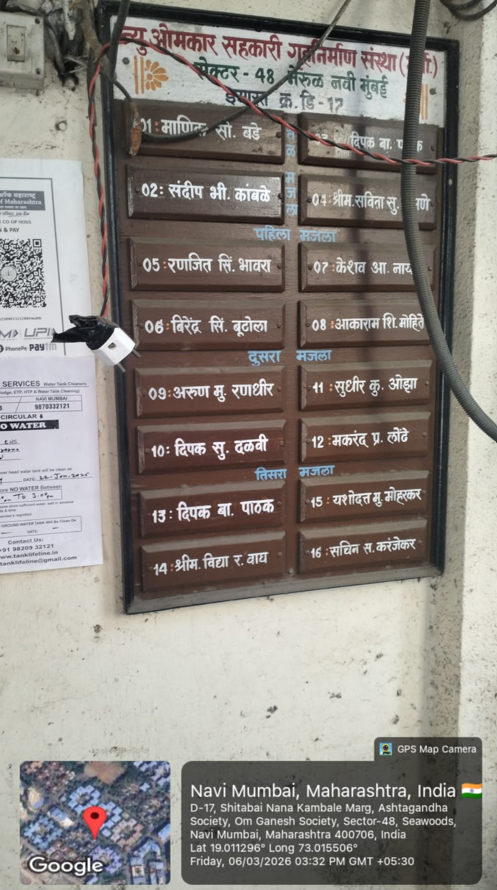 न्यु ओमकार सहकारी गृहनिर्माण संस्था
सेक्टर - 48 नेरुळ नवी मुंबई
इमारत क्र. डि - 17
01 : माणिक सो. बडे
दिपक बा.
02 : संदीप भी. कांबळे
04 : श्रीम. सविता सु.
पहिला मजला
05 : रणजित सिं. भावरा
07 : केशव आ.
06 : बिरेंद्र सिं. बूटोला
08 : आकाराम शि. मोहिते
दुसरा मजला
09 : अरुण मु. रणधीर
11 : सुधीर कु. ओझा
10 : दिपक सु. दळवी
12 : मकरंद प्र. लोंढे
तिसरा मजला
13 : दिपक बा. पाठक
15 : यशोदत्त मु. मोहरकर
14 : श्रीम. विद्या र. वाघ
16 : सचिन स. करंजेकर
of Maharashtra
CO OP HOUS
N & PAY
UPI
PhonePe Paytm
SERVICES Water Tank Cleaners
NAVI MUMBAI
9870332121
CIRCULAR
O WATER
DATE:
NO WATER Between
TO
GROUND WATER Tank Will Be Clean On
DATE:
Contact Us:
+91 98209 32121
tanklifeline.in
tanklifeline@gmail.com
GPS Map Camera
Navi Mumbai, Maharashtra, India
D-17, Shitabai Nana Kambale Marg, Ashtagandha
Society, Om Ganesh Society, Sector-48, Seawoods,
Navi Mumbai, Maharashtra 400706, India
Lat 19.011296° Long 73.015506°
Friday, 06/03/2026 03:32 PM GMT +05:30
Google